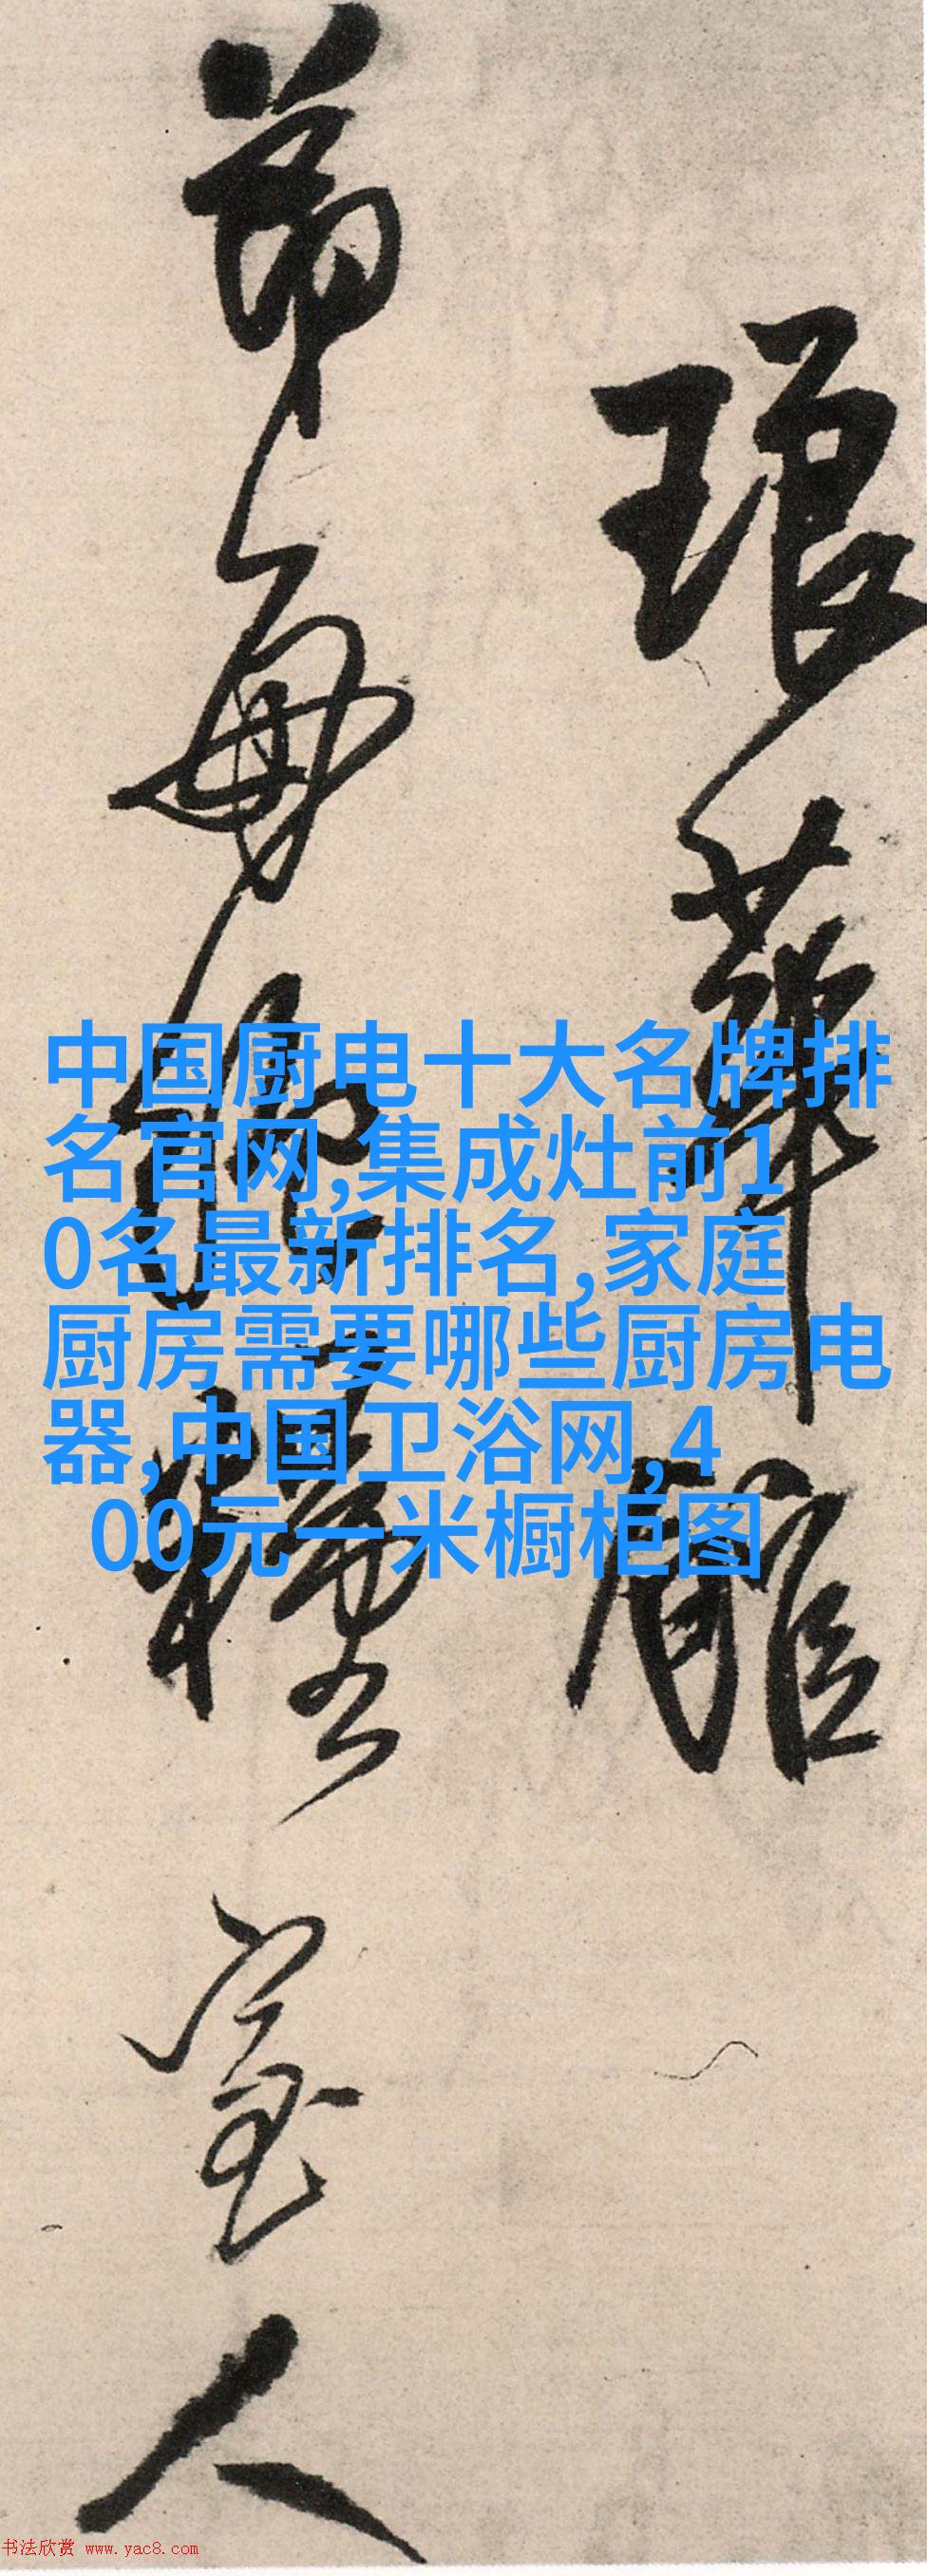 琅華館
中国厨电十大名牌排
名官网,集成灶前1
0名最新排名,家庭
厨房需要哪些厨房电
器,中国卫浴网,4
00元一米橱柜图
书法欣赏 www.yac8.com